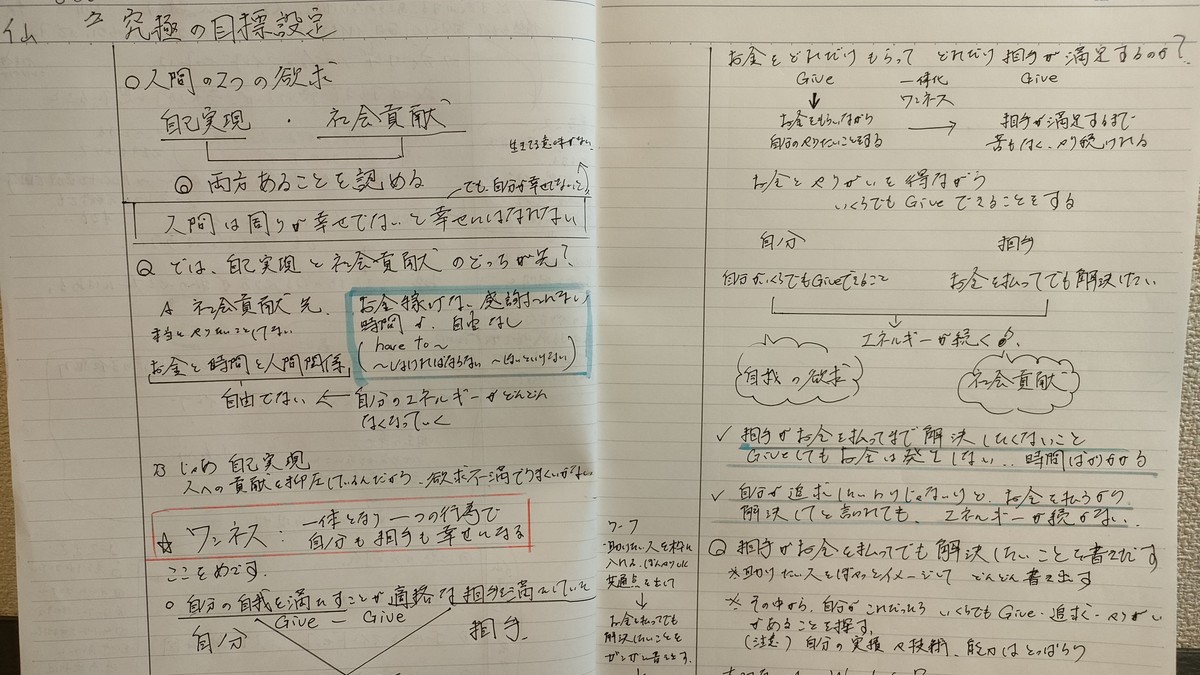 究極の目標設定
○人間の2つの欲求
自己実現 ・ 社会貢献
生きてる意味がない
Q 両方あることを認める
でも、自分が幸せでないと
人間は周りが幸せでないと幸せにはなれない
Q では、自己実現と社会貢献のどっちが先?
A 社会貢献先。
お金稼げない、感謝されない
時間 自由なし
have to~
~しなければならない ~ないといけない
お金と時間と人間関係
自由でない ← 自分のエネルギーがどんどん
なくなっていく
じゃあ 自己実現
人への貢献を抑圧しているんだから、欲求不満でうまくいかない
☆ ワンネス: 一体となり一つの行為で
自分も相手も幸せになる
ここをめざす。
○ 自分の自我を満たすことが 相手を満たしていた
Give ― Give
自分 相手
お金をどれだけもらって どれだけ相手が満足するのか?
Give 一体化 Give
ワンネス
お金をもらいながら 相手が満足するまで
自分のやりたいことをする → 苦もなく、やり続けれる
お金とやりがいを得ながら
いくらでもGiveできることをする
自分 相手
自分がいくらでもGiveできること お金を払ってでも解決したい
エネルギーが続く
自我の欲求 社会貢献
✓ 相手がお金を払ってまで解決したくないこと
Giveしてもお金は発生しない.. 時間ばかりかかる
✓ 自分が追求したいわけじゃないけど、お金を払うから
解決してと言われても、エネルギーが続かない..
ワーク
共通点を出して
↓
お金を払っても
解決したいことを
ガンガン書き出す。
Q 相手がお金を払ってでも解決したいことを書き出す
※助けたい人をばーっとイメージして どんどん書き出す
※ その中から、自分がこれだったら いくらでもGive・追求・やりがい
があることを探す。
(注意) 自分の実績や技術、能力はとっぱらう